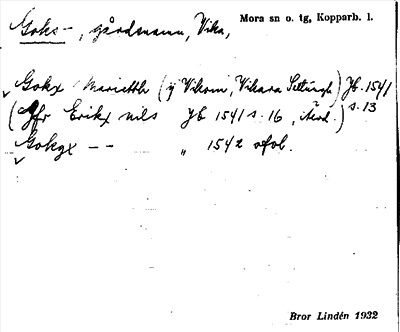 Goks-, gårdsnamn, Vika,
Mora sn o. tg, Kopparb. l.
Gokx Marietth (y Vikom, Vikara Settungh) Jb. 1541 s. 13
(Jfr Erikx nils Jb 1541 s. 16, ibid.)
Gokgx -- „ 1542 ofol.
Bror Lindén 1932